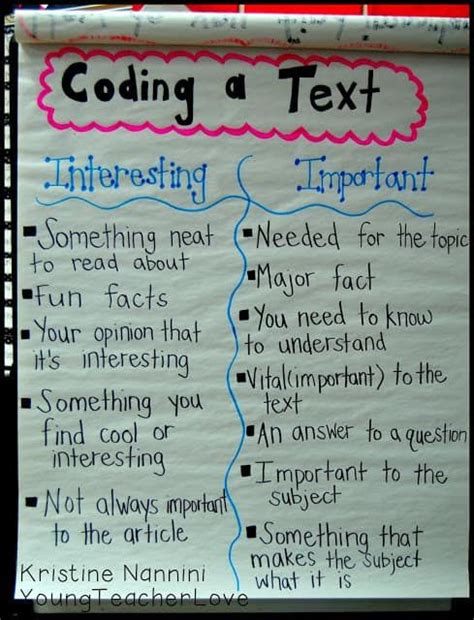 Coding a Text
Interesting
■Something neat
to read about
■Fun facts
■Your opinion that
it's interesting
■Something you
find cool or
interesting
■Not always important
to the article
Important
■Needed for the topic
■Major fact
■You need to know
to understand
■Vital(important) to the
text
■An answer to a question
■Important to the
subject
■Something that
makes the subject
what it is
Kristine Nannini
YoungTeacherLove